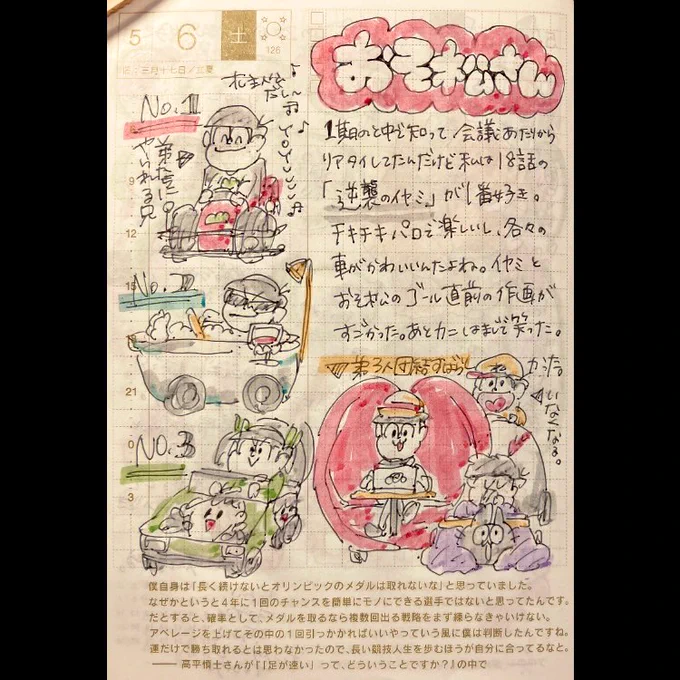 5 6 土
126
旧：三月十七日／立夏
おそ松さん
1期のと中で知って会議あたりから
リアタイしてたんだけど私は18話の
「逆襲のイヤミ」が1番好き。
チキチキパロで楽しいし、各々の
車がかわいいんだよね。イヤミと
おそ松のゴール直前の作画が
すごかった。あとカニはまじで笑った。
No.1
弟たちに
やられる兄
9
12
No.2
15
21
No.3
0
3
弟3人団結すばら
カラ松
いなくなる。
僕自身は「長く続けないとオリンピックのメダルは取れないな」と思っていました。
なぜかというと4年に1回のチャンスを簡単にモノにできる選手ではないと思ってたんです。
だとすると、確率として、メダルを取るなら複数回出る戦略をまず練らなきゃいけない。
アベレージを上げてその中の1回引っかかればいいやっていう風に僕は判断したんですね。
運だけで勝ち取れるとは思わなかったので、長い競技人生を歩むほうが自分に合ってるなと。
—— 高平慎士さんが『「足が速い」って、どういうことですか?』の中で